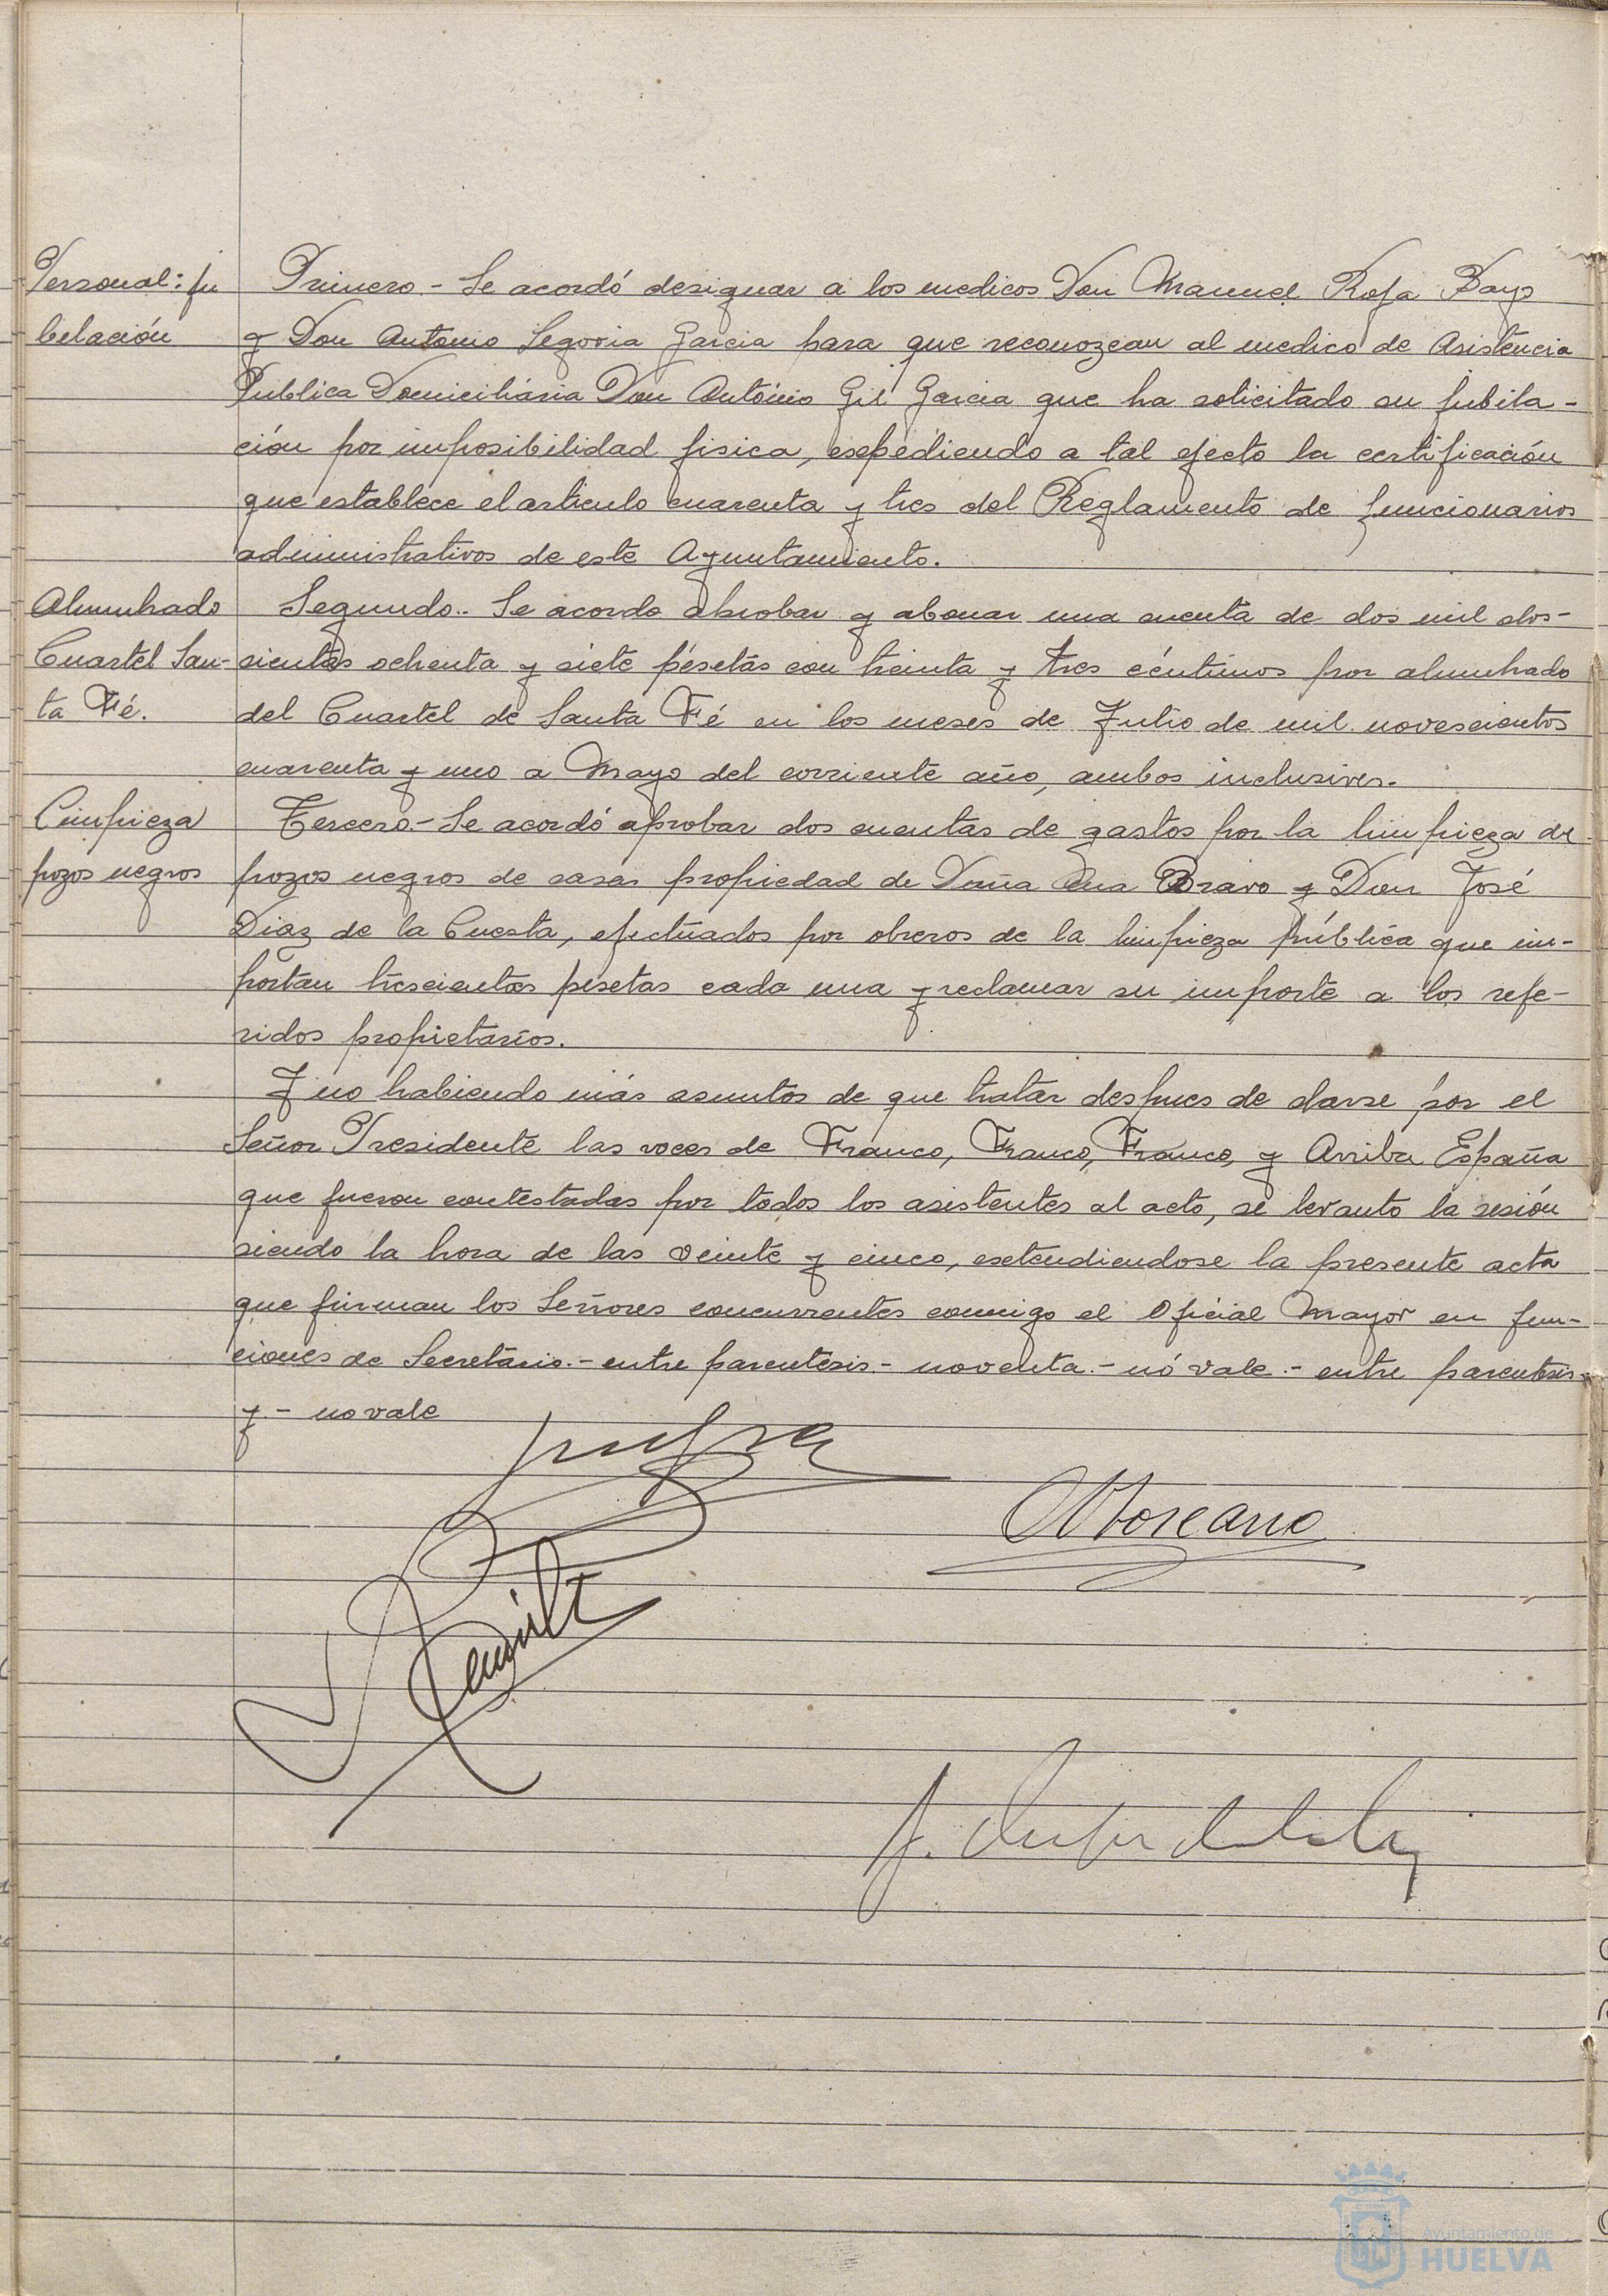 Personal: ju
belación
Primero.- Se acordó designar a los medicos Don Manuel Rofa Bayo
y Don Antonio Segovia Garcia para que reconozcan al medico de Asistencia
Publica Domiciliaria Don Antonio Gil Garcia que ha solicitado su jubila-
ción por imposibilidad fisica, expediendo a tal efecto la certificación
que establece el articulo cuarenta y tres del Reglamento de funcionarios
administrativos de este Ayuntamiento.
Alumbrado
Cuartel San-
ta Fé.
Segundo.- Se acordo aprobar y abonar una cuenta de dos mil dos-
cientas ochenta y siete pesetas con treinta y tres céntimos por alumbrado
del Cuartel de Santa Fé en los meses de Julio de mil novescientos
cuarenta y uno a Mayo del corriente año, ambos inclusives.
Limpieza
pozos negros
Tercero.- Se acordó aprobar dos cuentas de gastos por la limpieza de
pozos negros de casas propiedad de Doña Ana Bravo y Don José
Diaz de la Cuesta, efectuados por obreros de la limpieza pública que im-
portan trescientas pesetas cada una y reclamar su importe a los refe-
ridos propietarios.
Y no habiendo más asuntos de que tratar despues de darse por el
Señor Presidente las voces de Franco, Franco, Franco, y Arriba España
que fueron contestadas por todos los asistentes al acto, se levanto la sesión
siendo la hora de las veinte y cinco, extendiendose la presente acta
que firman los Señores concurrentes conmigo el Oficial Mayor en fun-
ciones de Secretario.- entre parentesis.- noventa.- nó vale.- entre parentesis.-
y.- no vale
Ayuntamiento de
HUELVA